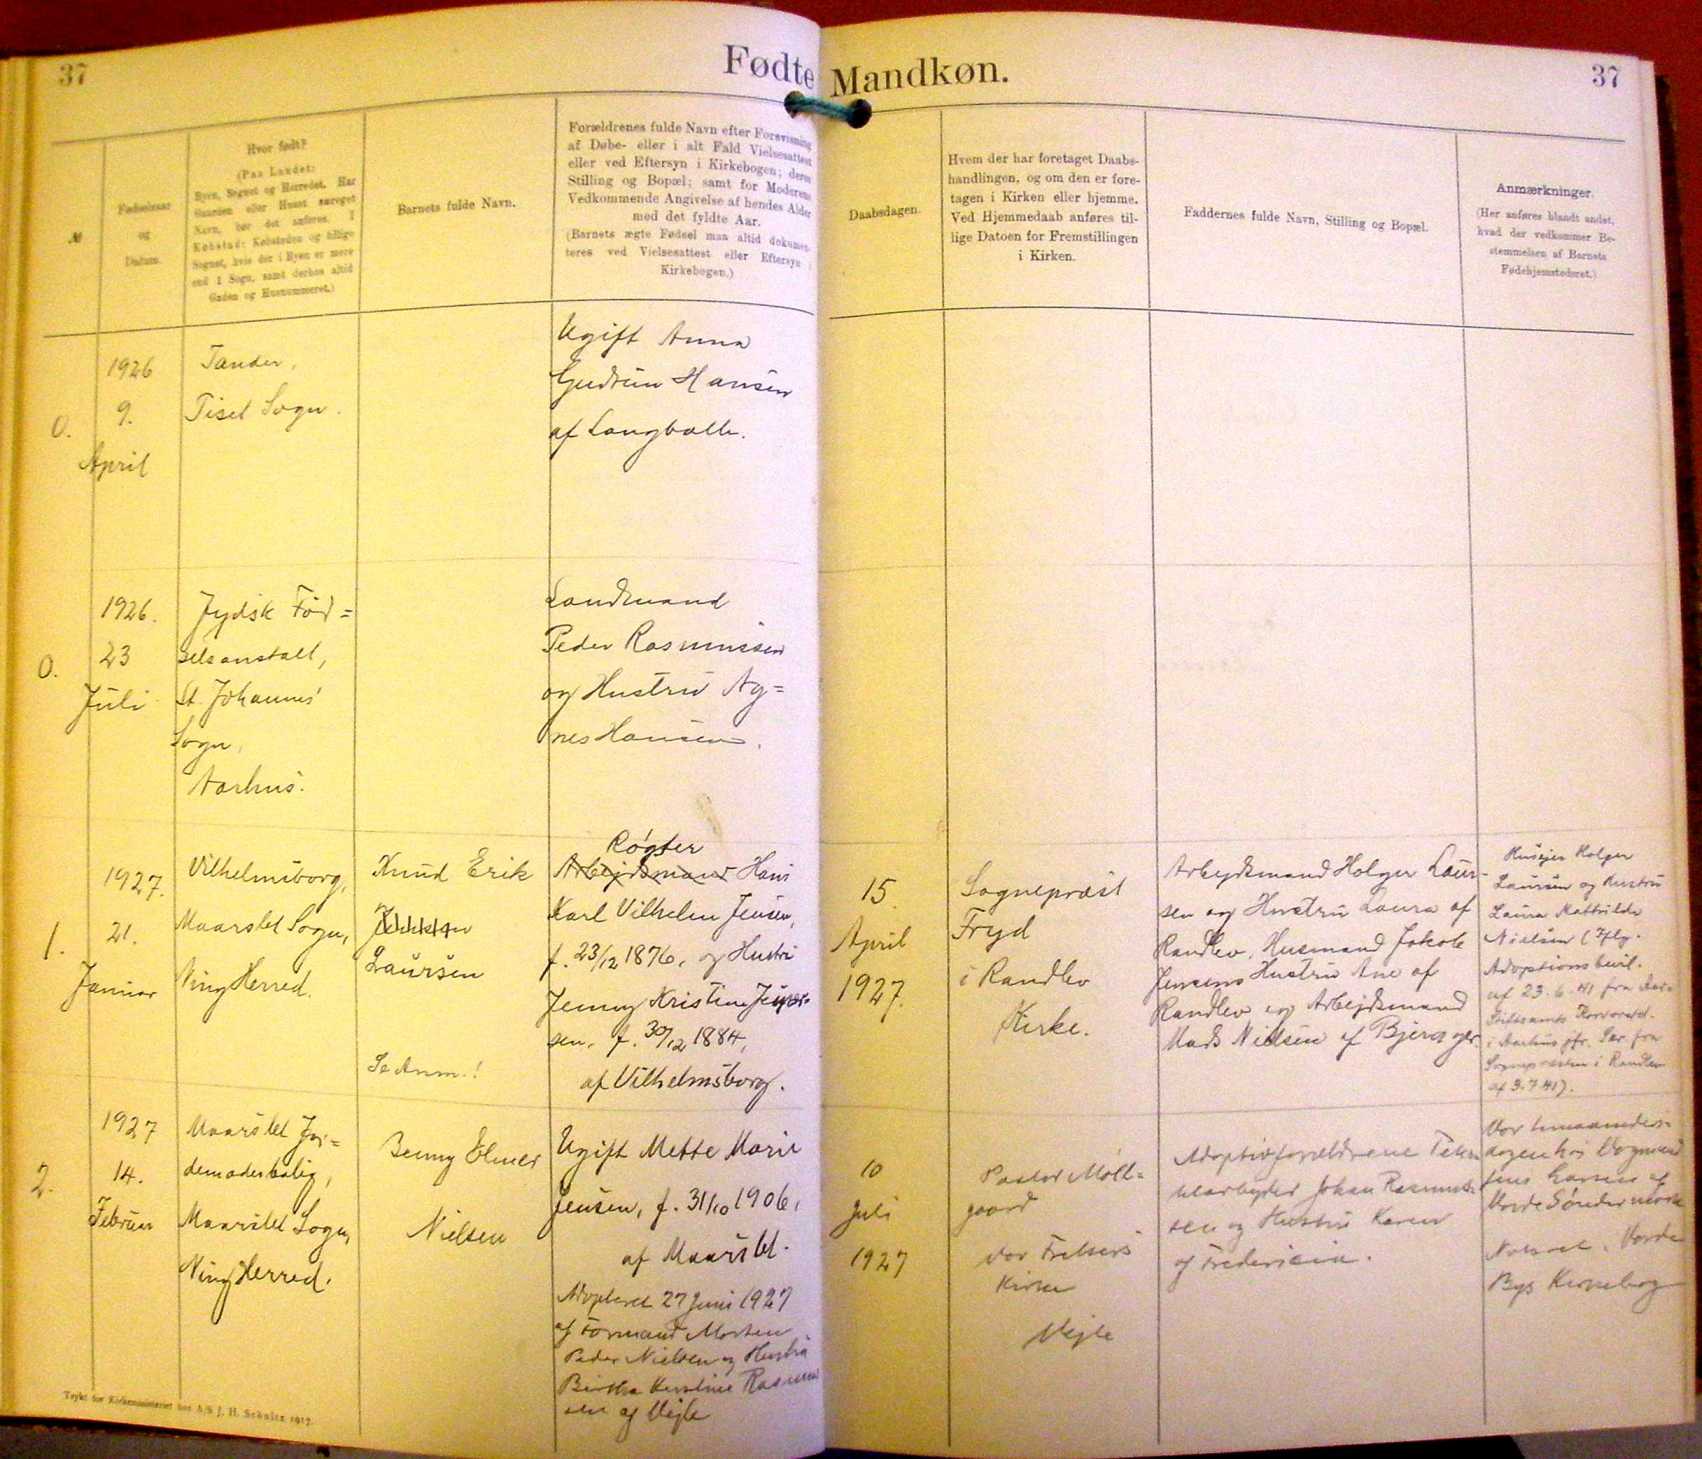 37
Fødte Mandkøn.
37
№
Fødselsaar
og
Datum.
Hvor født?
(Paa Landet:
Byen, Sognet og Herredet. Har
Gaarden eller Huset særeget
Navn, bør det anføres. I
Købstad: Købstaden og tillige
Sognet, hvis der i Byen er mere
end 1 Sogn, samt derhos altid
Gaden og Husnummeret.)
Barnets fulde Navn.
Forældrenes fulde Navn efter Forevisning
af Døbe- eller i alt Fald Vielsesattest
eller ved Eftersyn i Kirkebogen; deres
Stilling og Bopæl; samt for Moderens
Vedkommende Angivelse af hendes Alder
med det fyldte Aar.
(Barnets ægte Fødsel maa altid dokumen-
teres ved Vielsesattest eller Eftersyn i
Kirkebogen.)
Daabsdagen.
Hvem der har foretaget Daabs-
handlingen, og om den er fore-
tagen i Kirken eller hjemme.
Ved Hjemmedaab anføres til-
lige Datoen for Fremstillingen
i Kirken.
Faddernes fulde Navn, Stilling og Bopæl.
Anmærkninger.
(Her anføres blandt andet,
hvad der vedkommer Be-
stemmelsen af Barnets
Fødehjemstedsret.)
0.
1926
9.
April
Tander,
Tiset Sogn.
Ugift Anna
Gudrun Hansen
af Langballe.
0.
1926.
23
Juli
Jydsk Fød=
selsanstalt,
St. Johannes'
Sogn,
Aarhus.
Landmand
Peder Rasmussen
og Hustru Ag=
nes Hansen.
1.
1927.
21.
Januar
Vilhelmsborg,
Maarslet Sogn,
Ning Herred.
Knud Erik
Laursen
Se Anm.!
Røgter
Arbejdsmand Hans
Karl Vilhelm Jensen,
f. 23/12 1876, og Hustru
Jenny Kristine Jesper-
sen, f. 30/12 1884,
af Vilhelmsborg.
15.
April
1927.
Sognepræst
Fryd
i Randlev
Kirke.
Arbejdsmand Holger Laur-
sen og Hustru Laura af
Randlev, Husmand Jakob
Jensens Hustru Ane af
Randlev og Arbejdsmand
Mads Nielsen af Bjerager.
Husejer Holger
Laursen og Hustru
Laura Mathilde
Nielsen (Iflg.
Adoptionsbevil.
af 23.6.41 fra Aar-
Stiftsamts
i Aarhus jfr. Skr. fra
Sognepræsten i Randlev
af 3.7.41).
2.
1927
14.
Februar
Maarslet Jor=
demoderbolig,
Maarslet Sogn,
Ning Herred.
Benny Elmer
Nielsen
Ugift Mette Marie
Jensen, f. 31/10 1906,
af Maarslet.
Adopteret 27 Juni 1927
af Formand Morten
Peder Nielsen og Hustru
Birtha Kirstine Rasmus
sen af Vejle
10
Juli
1927
Pastor Møll=
gaard
Vor Frelsers
Kirke
Vejle
Adoptivforældrene
Johan Rasmus-
sen og Hustru Karen
af Fredericia.
Var
dagen hos Vognmand
Jens Larsen af
Varde Søndermark
Varde
Bys Kirkebog
Trykt for Kirkeministeriet hos A/S J. H. Schultz 1917.